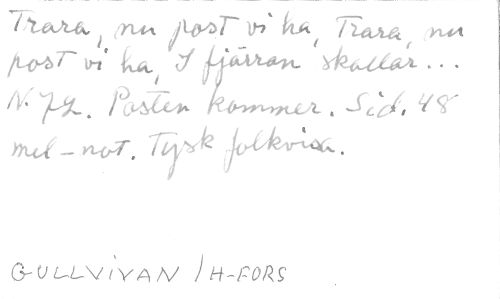 Trara, nu post vi ha, Trara, nu
post vi ha, I fjärran skallar...
N. 72. Posten kommer. Sid. 48
mel-not. Tysk folkvisa.
GULLVIVAN / H-FORS